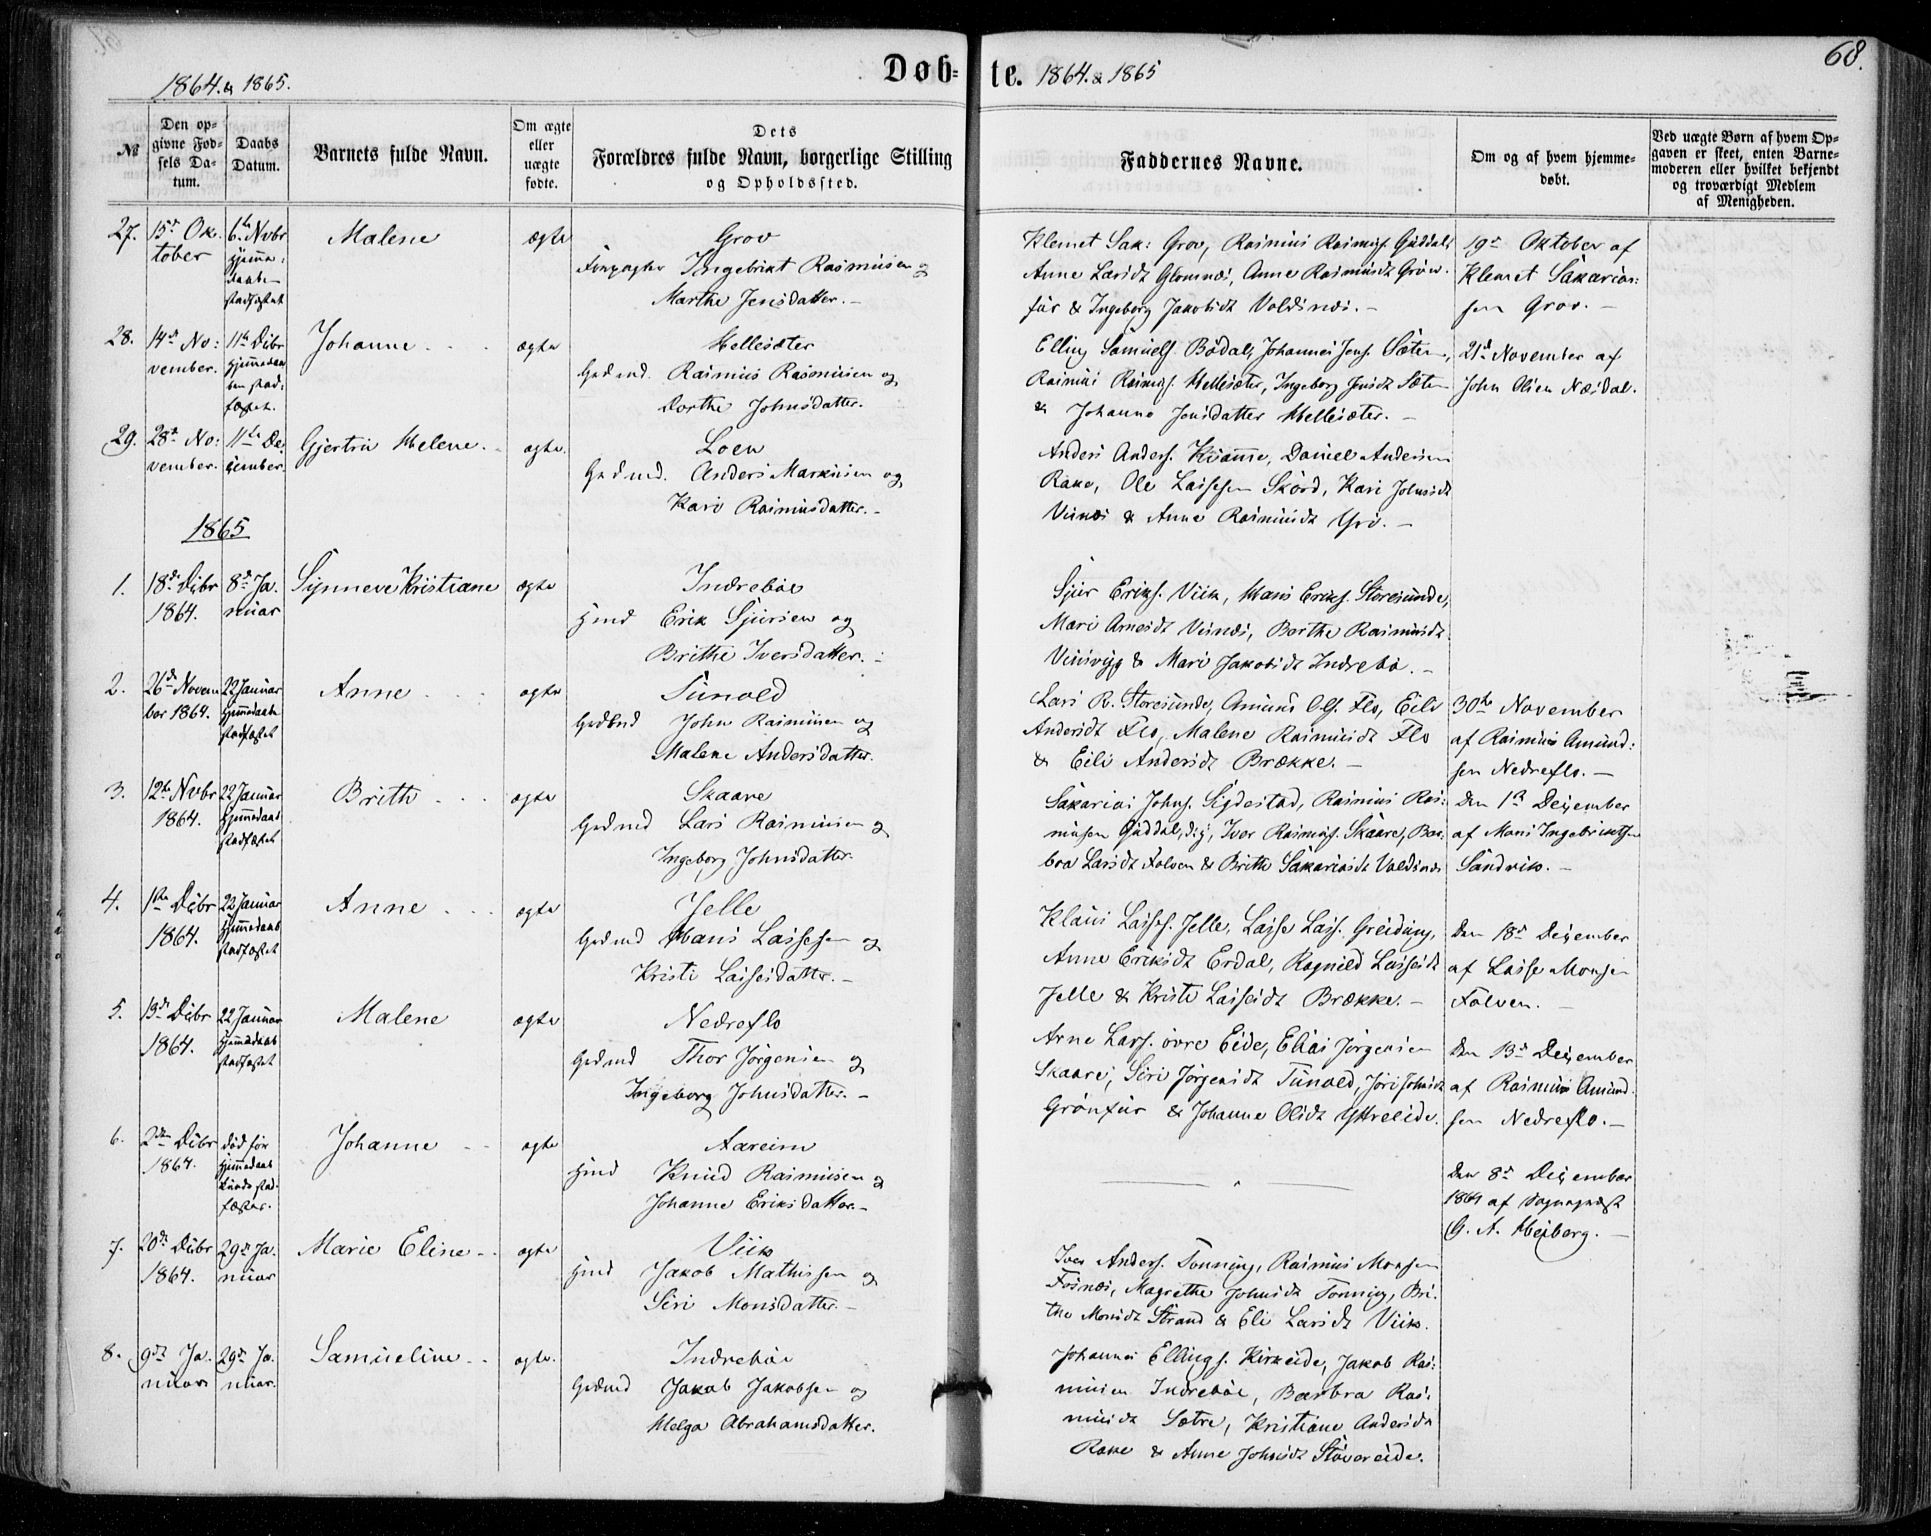 68.
Døb=te.
1864. & 1865.
1864. & 1865
№
Den op=
givne Fød=
sels Da=
tum.
Daabs
Datum.
Barnets fulde Navn.
Om ægte
eller
uægte
fødte.
Dets
Forældres fulde Navn, borgerlige Stilling
og Opholdssted.
Faddernes Navne.
Om og af hvem hjemme=
døbt.
Ved uægte Børn af hvem Op=
gaven er skeet, enten Barne=
moderen eller hvilket bekjendt
og troværdigt Medlem
af Menigheden.
27. 15de Ok-
tober
6te Novbr
hjemme-
daab
stadfæstet
Malene
ægte
Grov
Ingebrikt Rasmusen og
Marthe Jensdatter. -
Klemet Sak: Grov, Rasmus Rasmus. Guddal,
Anne Larsdt Glomnæs, Anne Rasmusdt Grøn-
fur & Ingeborg Jakobsdt Valdsnæs. -
19de Oktober af
Klemet Sakarias=
sen Grov. -
28. 14de No=
vember.
11te Dcbr
hjemmedaa
ben stad=
fæstet.
Johanne
ægte
Hellesæter
Gaardmd. Rasmus Rasmusen og
Dorthe Johnsdatter.
Elling Samuels. Bødal, Johannes Jens. Sæten,
Rasmus Rasmus. Hellesæter, Ingeborg Jensdt Sæten
& Johanne Jensdatter Hellesæter. -
21de November af
John Olsen Næsdal.
29. 28de No=
vember.
11te De=
cember.
Gjertru Helene
ægte.
Loen
Gaardmd. Anders Markusen og
Kari Rasmusdatter. -
Anders Anders. Kvamme, Daniel Andersen
Rake, Ole Lassesen Skåred, Kari Johnsdt
Visnæs & Anne Rasmusdt Yri. -
1865
1. 18de Dcbr
1864.
8de Ja-
nuar
Synneve Kristiane
ægte
Indrebøe
Hmd Erik Sjursen og
Brithe Iversdatter. -
Sjur Eriks. Viik, Hans Eriks. Storesunde,
Mari Arnesdt Visnæs, Berthe Rasmusdt
Vinsvyg & Mari Jakobsdt Indrebø. -
2. 26de Novem
ber 1864.
22 Januar
hjemmedaab
stadfæstet
Anne
ægte
Tunold
Gaardmd John Rasmusen og
Malene Andersdatter.
Lars R. Storesunde, Amund Ols. Flo, Eili
Andersdt Flo, Malene Rasmusdt Flo
& Eili Andersdt Brække. -
30te November
af Rasmus Amund=
sen Nedreflo. -
3. 12te Novbr
1864.
22 Januar
hjemmedaab
stadfæstet
Brith
ægte
Skaare
Gaardmd Lars Rasmusen og
Ingeborg Johnsdatter.
Sakarias Johns. Sigdestad, Rasmus Ras=
musen Guddal, Iver Rasmus. Skaare, Bar=
bra Larsdt Folven & Brith Sakariasdt Valdsnæs
Den 1ste December
af Mons Ingebriktsen
Sandvik. -
4. 1ste Dcbr
1864.
22 Januar
hjemmedaab
stadfæstet
Anne
ægte
Jelle
Gaardmd Hans Lassesen og
Kristi Lassesdatter. -
Klaus Lasses. Jelle, Lasse Lass. Greiding,
Anne Eriksdt Erdal, Ragnild Lassesdt
Jelle & Kristi Lassesdt Brække. -
Den 18de December
af Lasse Monsen
Folven. -
5. 13de Dcbr
1864.
22 Januar
hjemmedaab
stadfæstet
Malene
ægte
Nedreflo
Gaardmd Thor Jørgensen og
Ingeborg Johnsdatter. -
Arne Lars. øvre Eide, Elias Jørgensen
Skaare, Siri Jørgensdt Tunold, Jori Johnsdt
Grønfur & Johanne Olsdt Ytreeide.
Den 13de December
af Rasmus Amund-
sen Nedreflo. -
6. 2den Dcbr
1864.
død før
hjemmedaab
kunde stad-
fæstes.
Johanne
ægte
Aareim
Hmd Knud Rasmusen og
Johanne Eriksdatter. -
Den 8de December
1864 af Sognepræst
G. A. Heiberg. -
7. 20de Dcbr
1864.
29de Ja-
nuar
Marie Eline
ægte
Viik
Hmd Jakob Mathissen og
Siri Monsdatter. -
Iver Anders. Tonning, Rasmus Monsen
Fosnæs, Magrethe Johnsdt Tonning, Bri-
the Monsdt Strand & Eli Larsdt Viik.
8. 9de Ja-
nuar
29de Ja-
nuar.
Samueline
ægte.
Indrebøe
Gaardmd Jakob Jakobsen og
Helga Abrahamsdatter.
Johannes Ellings. Kirkeide, Jakob Ras=
musen Indrebøe, Barbra Ras=
musdt Sætre, Kristiane Andersdt
Rake & Anne Johnsdt Støvereide.